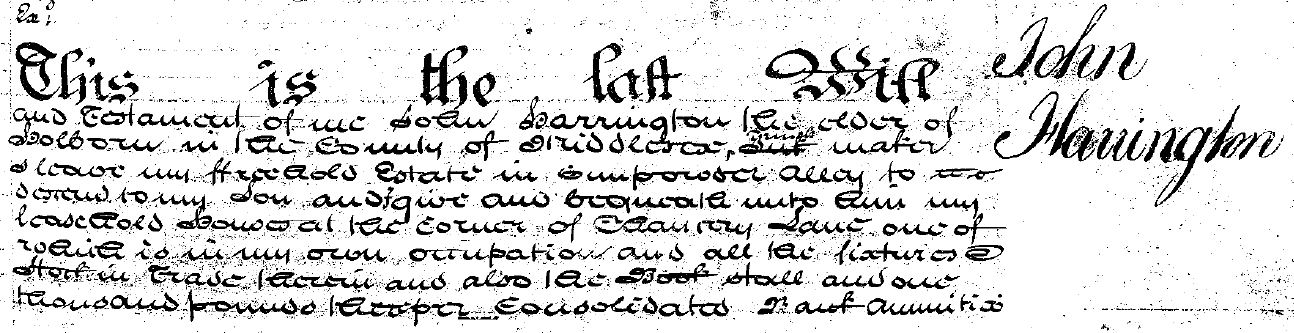 Exd
John
Harrington
This is the last Will
and Testament of me John Harrington the elder of
Holborn in the County of Middlesex, Trunk maker
I leave my ffreehold Estate in Gunpowder Alley to
descend to my Son and I give and bequeath unto him my
leasehold Houses at the Corner of Chancery Lane one of
which is in my own occupation and all the fixtures &
Stock in Trade therein and also the Book stall and one
thousand pounds three per Consolidated Bank Annuities